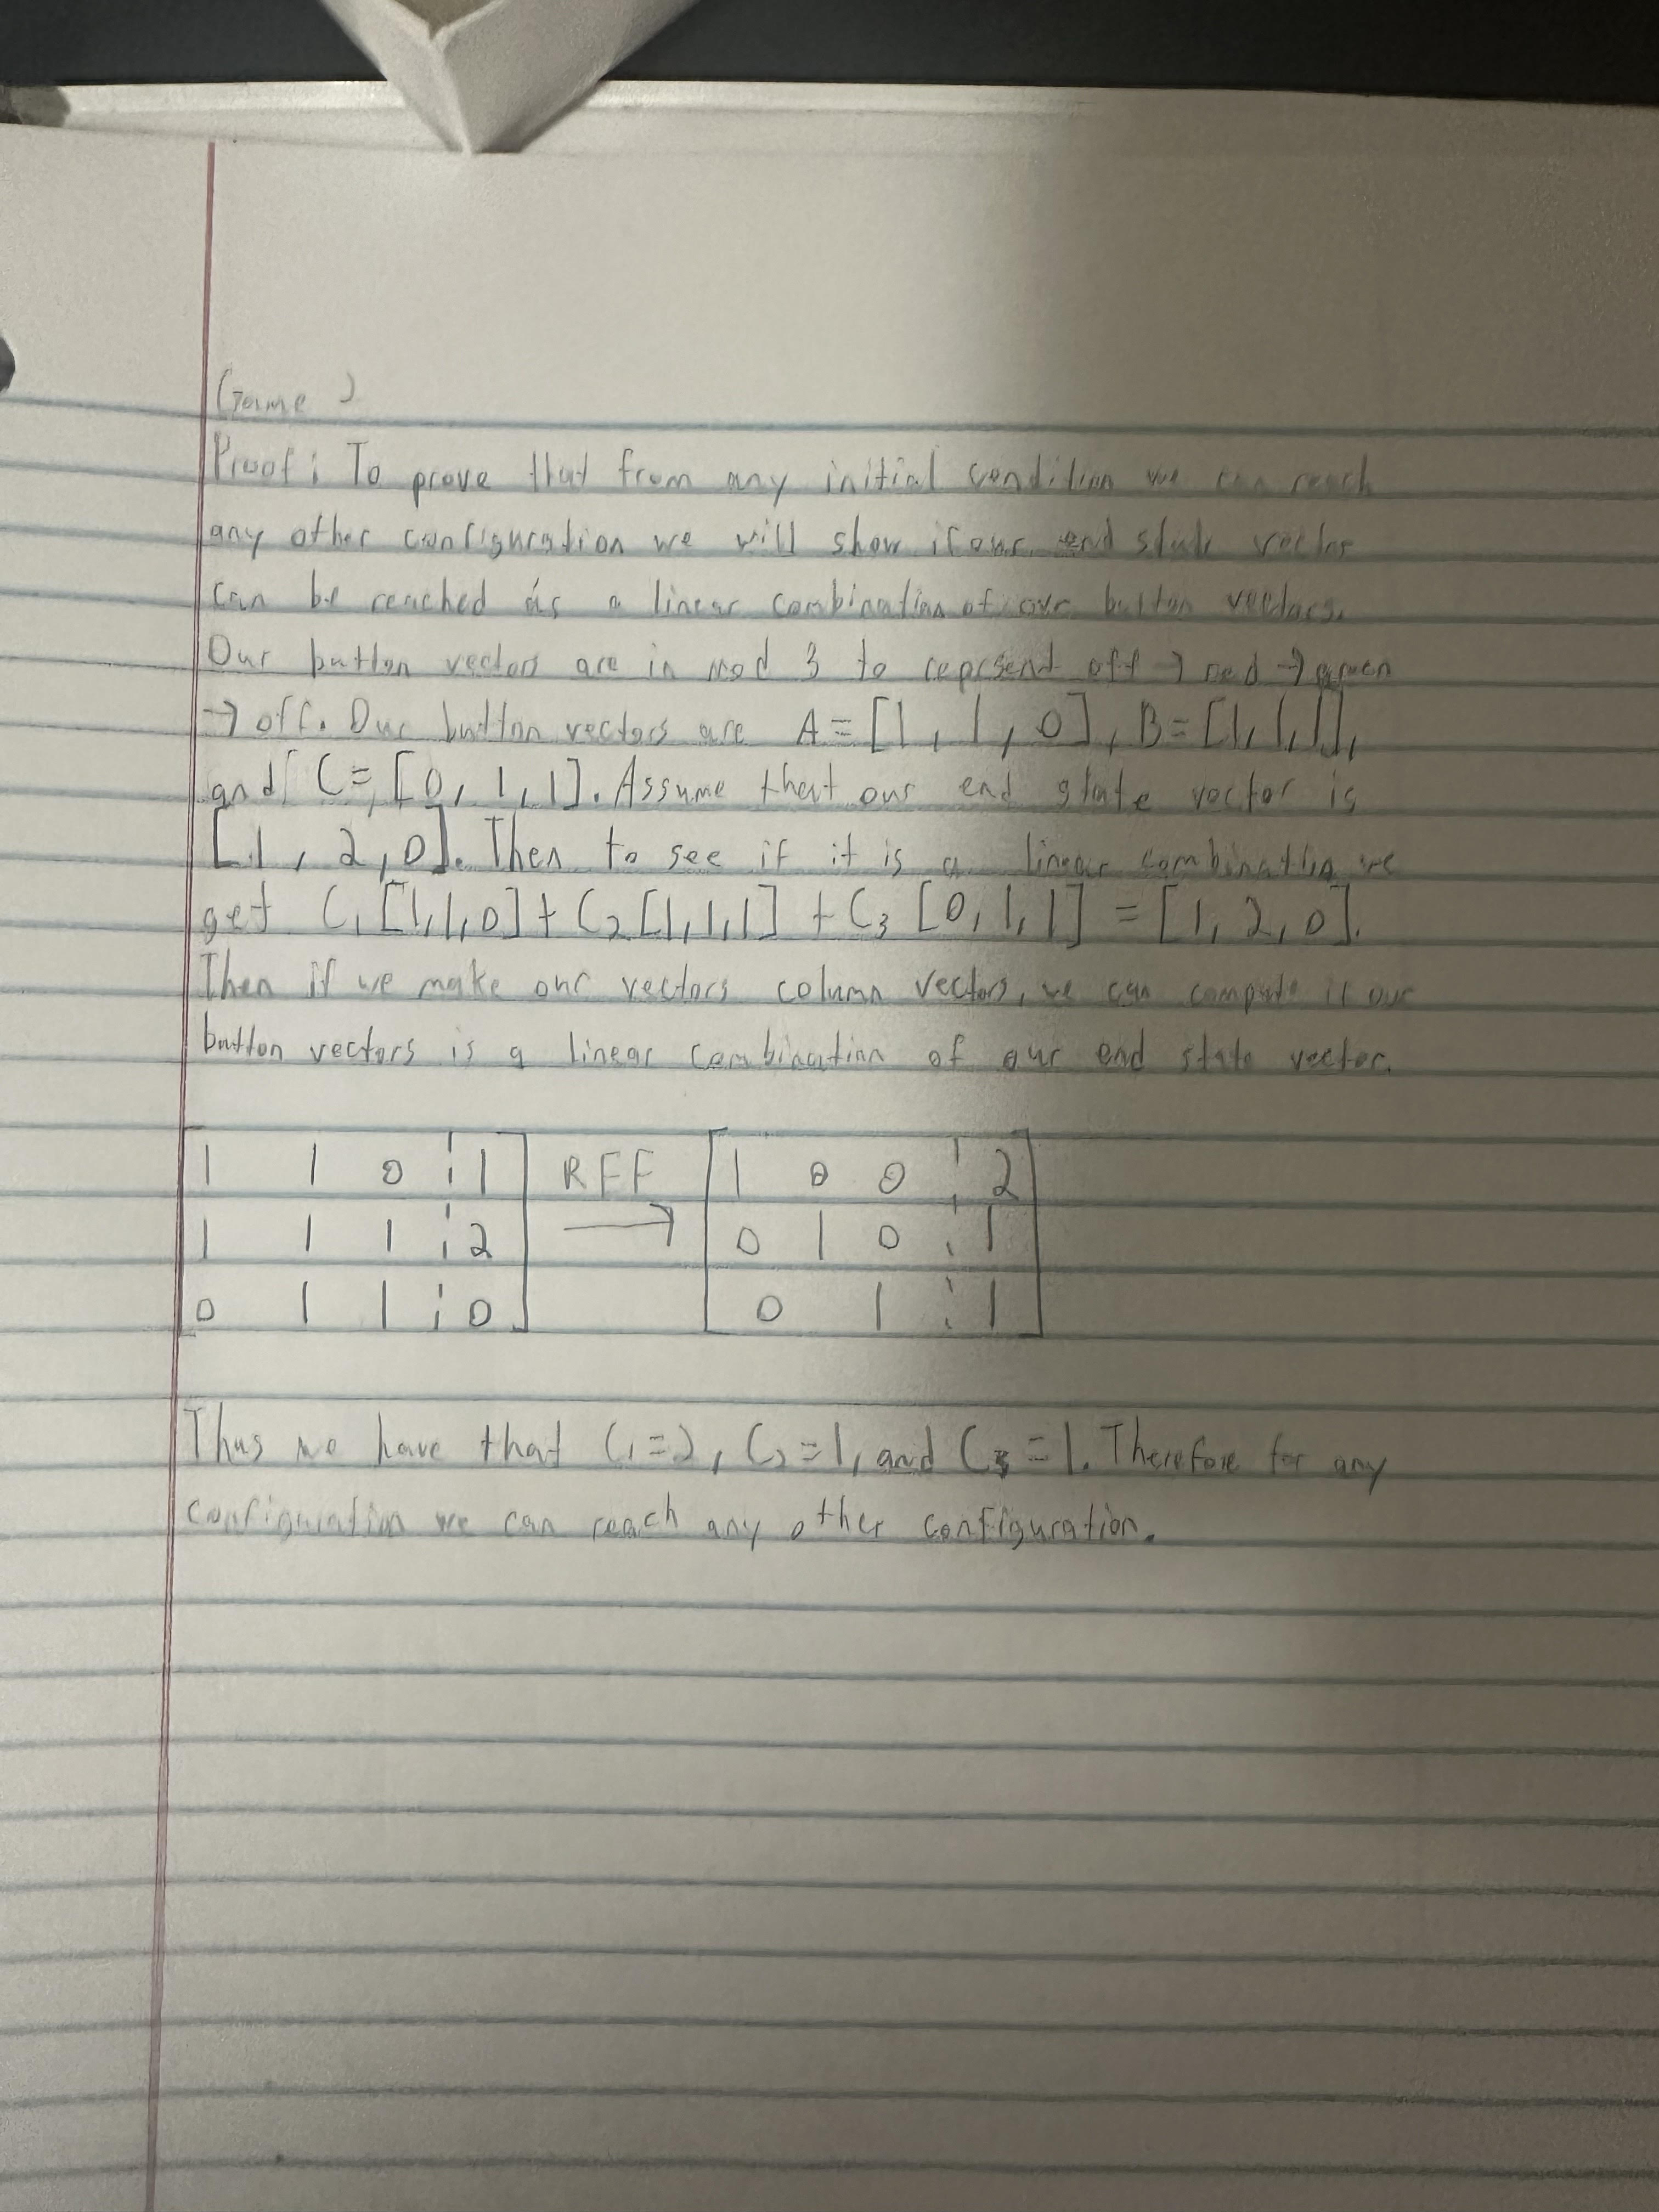 (Game )
Proof: To prove that from any initial condition we can reach
any other configuration we will show if our end state vector
can be reached as a linear combination of our button vectors.
Our button vectors are in mod 3 to repersend off → red → green
→ off. Our button vectors are A = [1, 1, 0], B = [1, 1, 1],
and C = [0, 1, 1]. Assume that our end state vector is
[1, 2, 0]. Then to see if it is a linear combination we
get C₁[1,1,0] + C₂[1,1,1] + C₃[0,1,1] = [1, 2, 0].
Then if we make our vectors column vectors, we can compute if our
button vectors is a linear combination of our end state vector.
[1 1 0 ¦ 1] RFF → [1 0 0 ¦ 2]
[1 1 1 ¦ 2] [0 1 0 ¦ 1]
[0 1 1 ¦ 0] [0 1 ¦ 1]
Thus we have that C₁=2, C₂=1, and C₃=1. Therefore for any
configuration we can reach any other configuration.